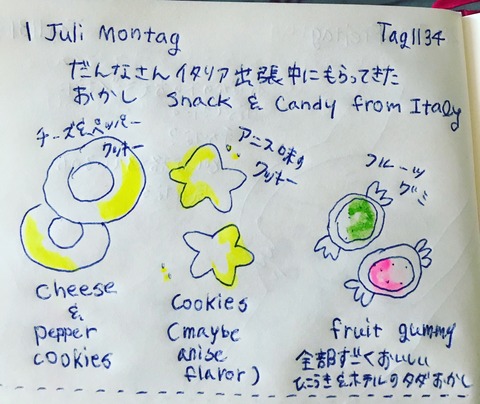 1 Juli Montag
Tag1134
だんなさんイタリア出張中にもらってきた
おかし Snack & Candy from Italy
チーズ&ペッパー
クッキー
アニス味の
クッキー
フルーツ
グミ
cheese
&
pepper
cookies
cookies
(maybe
anise
flavor)
fruit gummy
全部すごくおいしい
ひこうき&ホテルのタダおかし